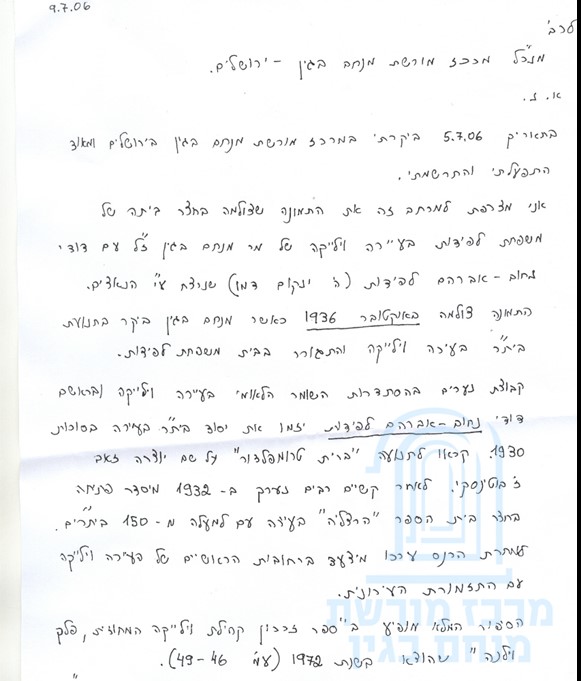 9.7.06
לכב'
מנכ"ל מרכז מורשת מנחם בגין - ירושלים.
א. נ.
בתאריך 5.7.06 ביקרתי במרכז מורשת מנחם בגין בירושלים ומאוד
התפעלתי והתרשמתי.
אני מצרפת למכתב זה את התמונה שצולמה בחצר ביתה של
משפחת לפידות בעיירה וילייקה של מר מנחם בגין ז"ל עם דודי
נחום - אברהם לפידות (ה' ינקום דמו) שנרצח ע"י הנאצים.
התמונה צולמה באוקטובר 1936 כאשר מנחם בגין ביקר בתנועת
בית"ר בעירה וילייקה והתגורר בבית משפחת לפידות.
קבוצת נערים בהסתדרות השומר הלאומי בעיירה וילייקה ובראשם
דודי נחום - אברהם לפידות יזמו את יסוד בית"ר בעירה בסוכות
1930. קראו לתנועה "ברית טרומפלדור" על שם יוצרה זאב
ז'בוטינסקי. לאחר קשיים רבים נערך ב- 1932 מיסדר פתיחה
בחצר בית הספר "הרצליה" בעירה עם למעלה מ- 150 בית"רים.
למחרת הכנס ערכו מיצעד ברחובות הראשיים של העירה וילייקה
עם התזמורת העירונית.
הסיפור המלא מופיע ב"ספר זכרון קהילת וילייקה המחוזית, פלך
וילנה" שהוצא בשנת 1972 (עמ' 46 - 49).
מרכז מורשת
מנחם בגין